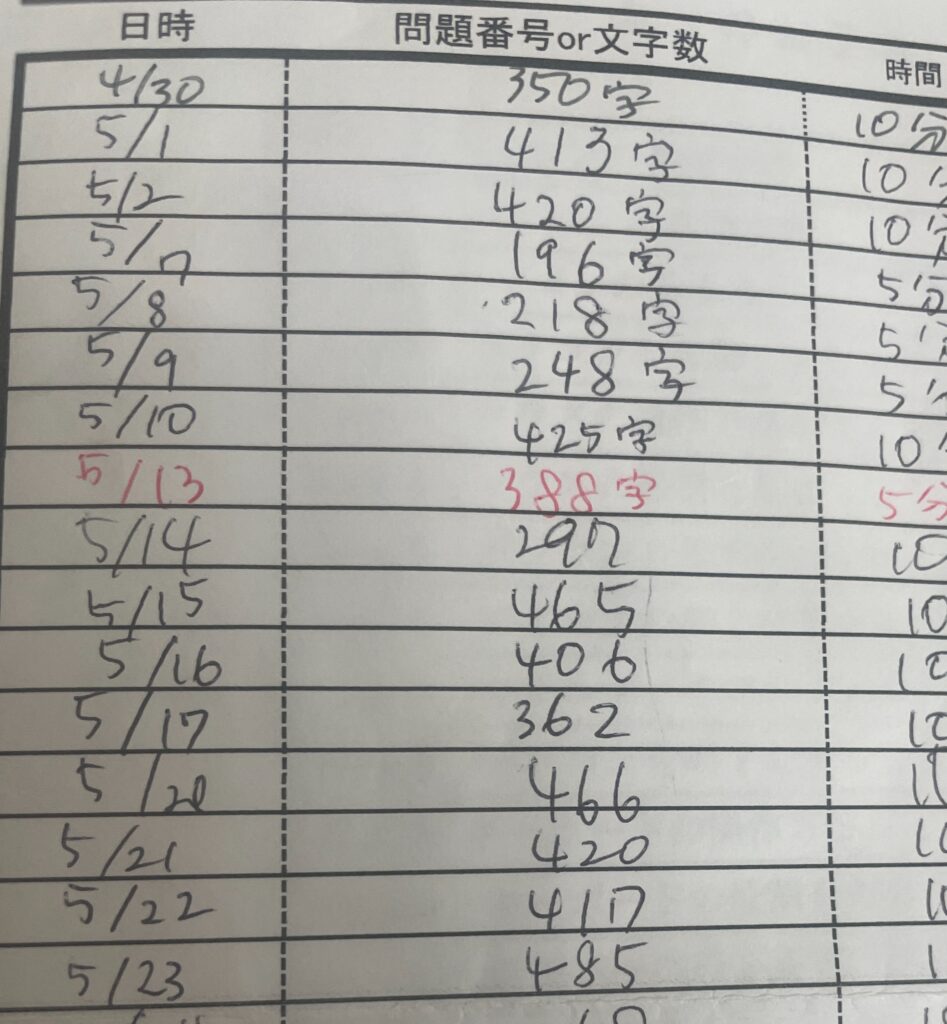 日時 問題番号or文字数 時間
4/30 350字 10分
5/1 413字 10分
5/2 420字 10分
5/7 196字 5分
5/8 218字 5分
5/9 248字 5分
5/10 425字 10分
5/13 388字 5分
5/14 297 10
5/15 465 10
5/16 406 10
5/17 362 10
5/20 466
5/21 420
5/22 417
5/23 485